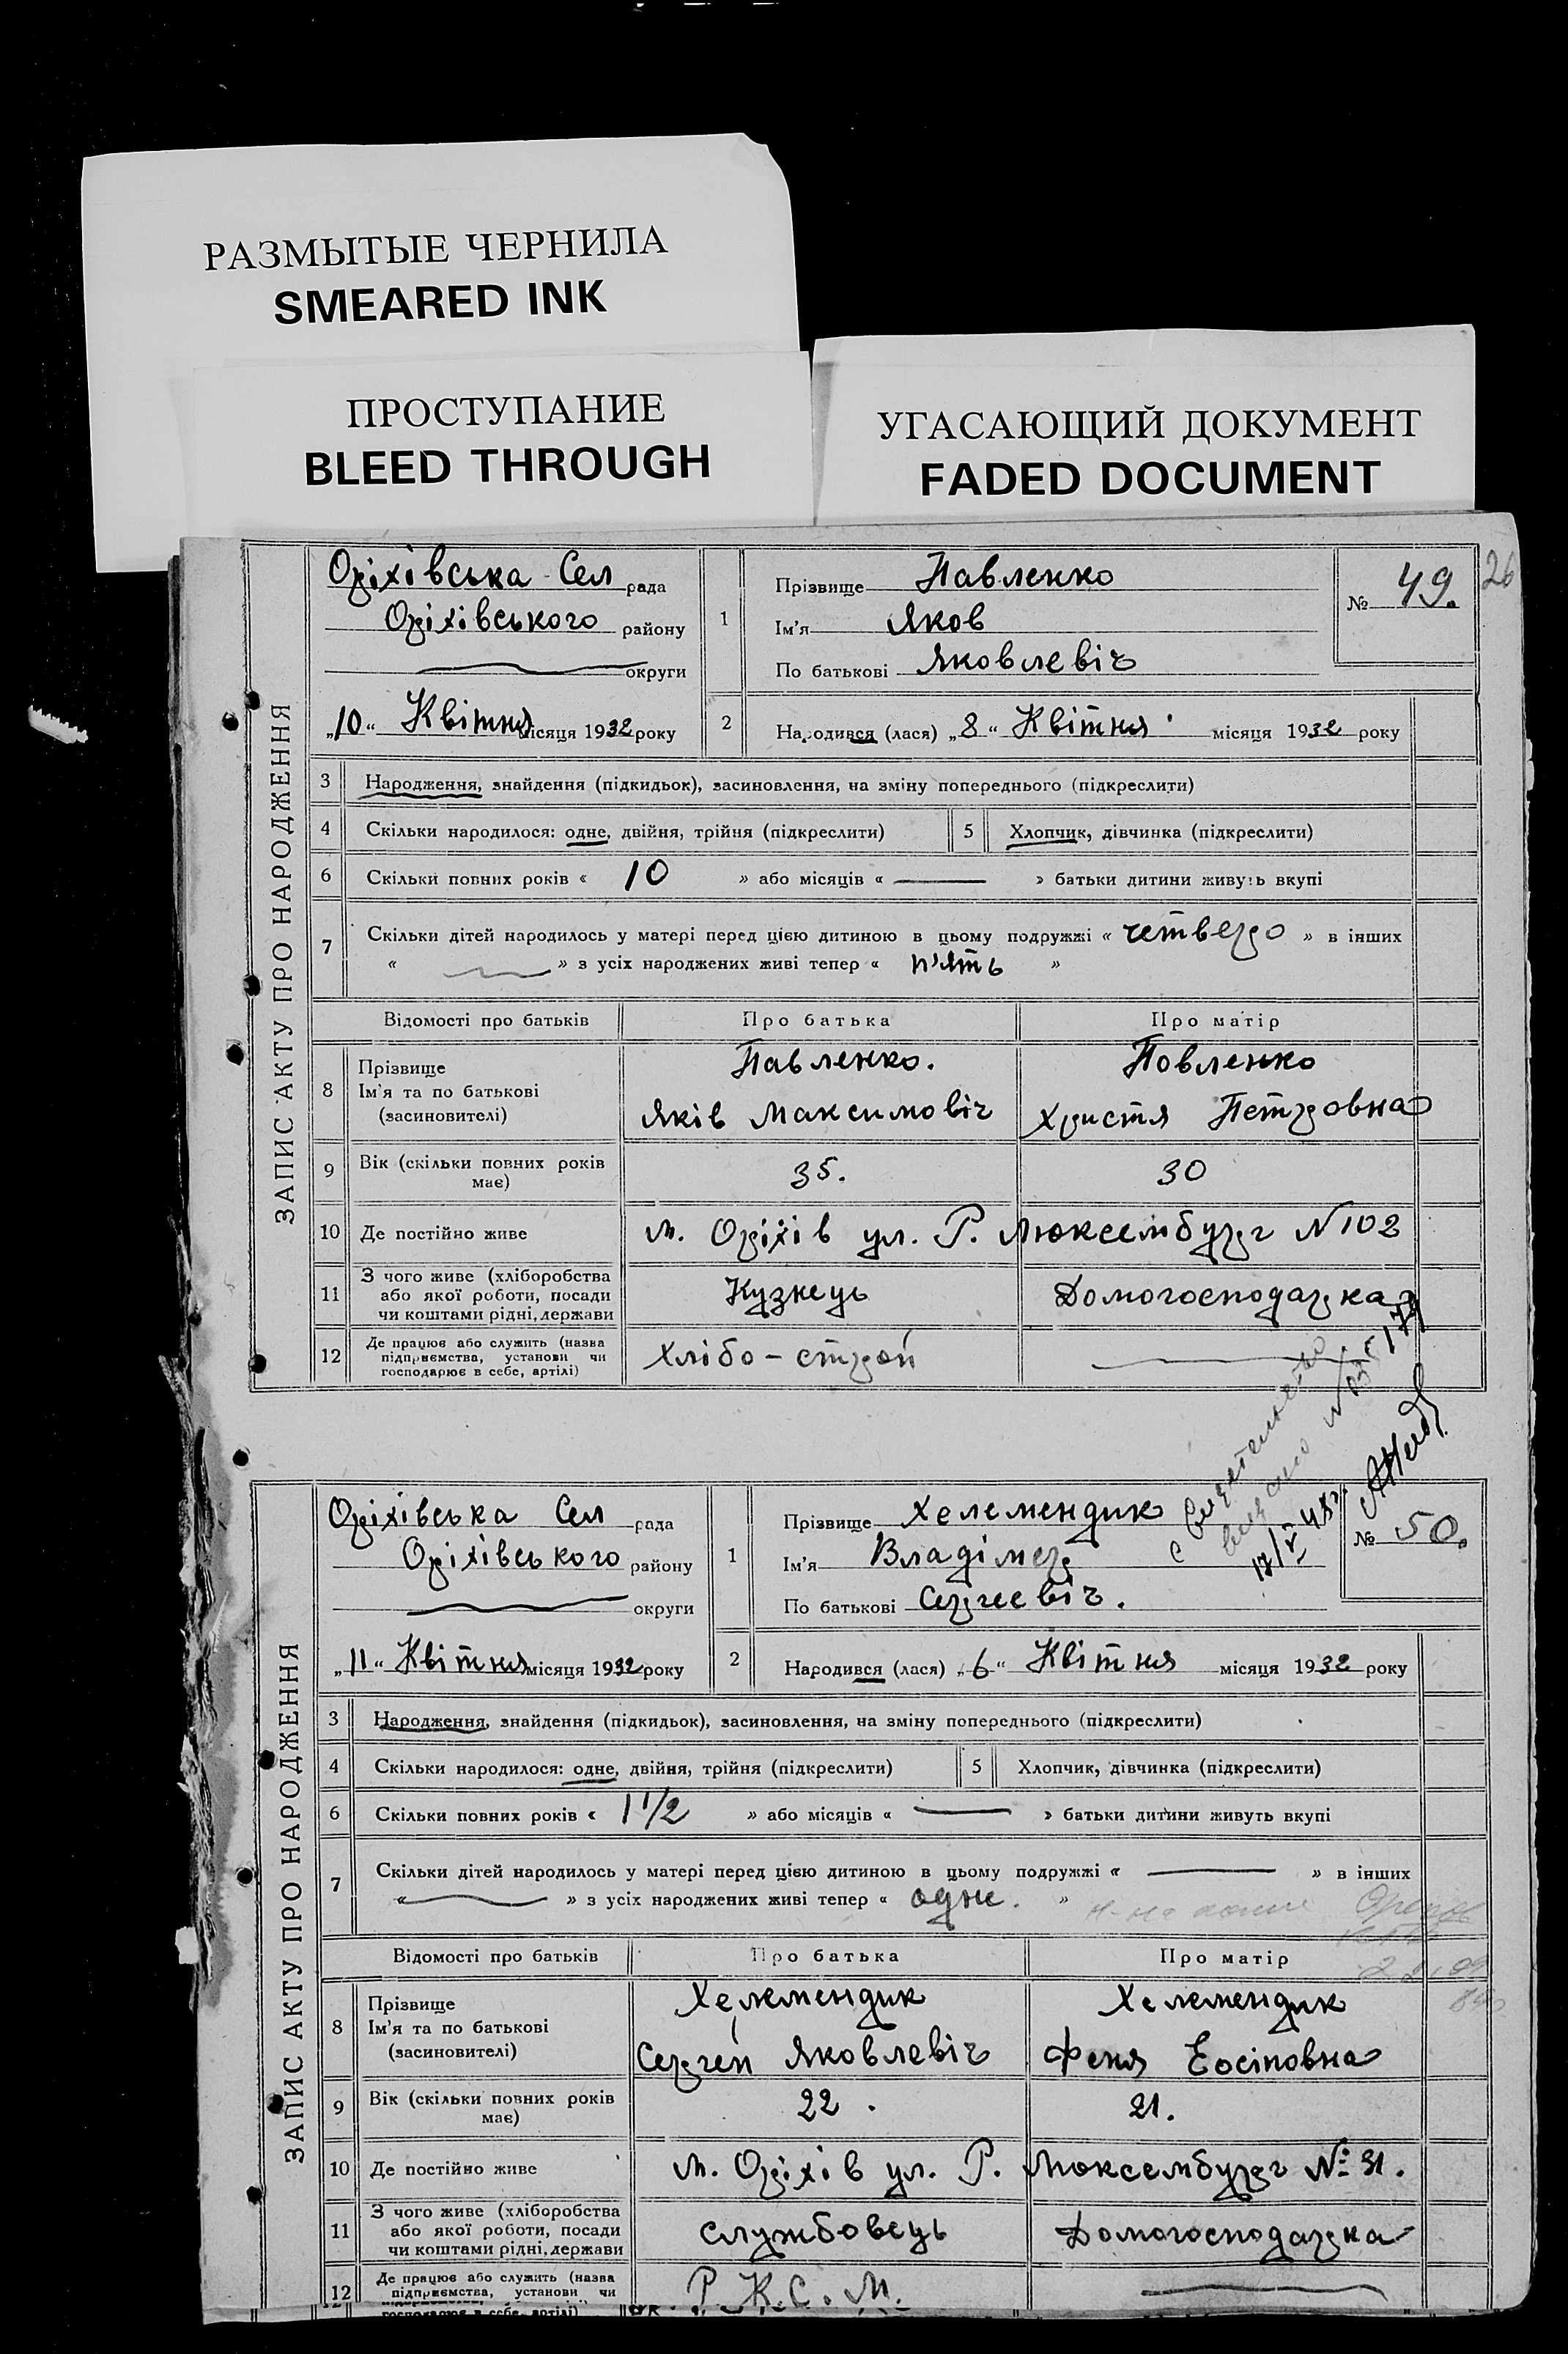 РАЗМЫТЫЕ ЧЕРНИЛА
SMEARED INK
ПРОСТУПАНИЕ
BLEED THROUGH
УГАСАЮЩИЙ ДОКУМЕНТ
FADED DOCUMENT
26
ЗАПИС АКТУ ПРО НАРОДЖЕННЯ
Оріхівська Сел рада
Оріхівського району
округи
„10“ Квітня місяця 1932 року
1 Прізвище Павленко
Ім'я Яков
По батькові Яковлевіч
№ 49.
2 Народився (лася) „8“ Квітня місяця 1932 року
3 Народження, знайдення (підкидьок), засиновлення, на зміну попереднього (підкреслити)
4 Скільки народилося: одне, двійня, трійня (підкреслити) 5 Хлопчик, дівчинка (підкреслити)
6 Скільки повних років « 10 » або місяців « — » батьки дитини живуть вкупі
7 Скільки дітей народилось у матері перед цією дитиною в цьому подружжі « четверо » в інших
« — » з усіх народжених живі тепер « п'ять »
Відомості про батьків Про батька Про матір
8 Прізвище Павленко. Повленко
Ім'я та по батькові
(засиновителі) Яків Максимовіч Христя Петровна
9 Вік (скільки повних років
має) 35. 30
10 Де постійно живе м. Оріхів ул. Р. Люксембург N 102
11 З чого живе (хліборобства
або якої роботи, посади
чи коштами рідні, держави Кузнець Домогосподарка
12 Де працює або служить (назва
підприємства, установи чи
господарює в себе, артілі) Хлібо-строй —
Свидетельство
выдано
17/V 48г.
ЗАПИС АКТУ ПРО НАРОДЖЕННЯ
Оріхівська Сел рада
Оріхівського району
округи
„11“ Квітня місяця 1932 року
1 Прізвище Хелемендик
Ім'я Владімер
По батькові Сергеевіч.
№ 50.
2 Народився (лася) „6“ Квітня місяця 1932 року
3 Народження, знайдення (підкидьок), засиновлення, на зміну попереднього (підкреслити)
4 Скільки народилося: одне, двійня, трійня (підкреслити) 5 Хлопчик, дівчинка (підкреслити)
6 Скільки повних років « 1 1/2 » або місяців « — » батьки дитини живуть вкупі
7 Скільки дітей народилось у матері перед цією дитиною в цьому подружжі « — » в інших
« — » з усіх народжених живі тепер « одне. »
Відомості про батьків Про батька Про матір
8 Прізвище Хелемендик Хелемендик
Ім'я та по батькові
(засиновителі) Сергей Яковлевіч Феня Еосіповна
9 Вік (скільки повних років
має) 22. 21.
10 Де постійно живе м. Оріхів ул. Р. Люксембург № 31.
11 З чого живе (хліборобства
або якої роботи, посади
чи коштами рідні, держави службовець Домогосподарка
12 Де працює або служить (назва
підприємства, установи чи Р. К. С. М. —
господарює в себе, артілі)